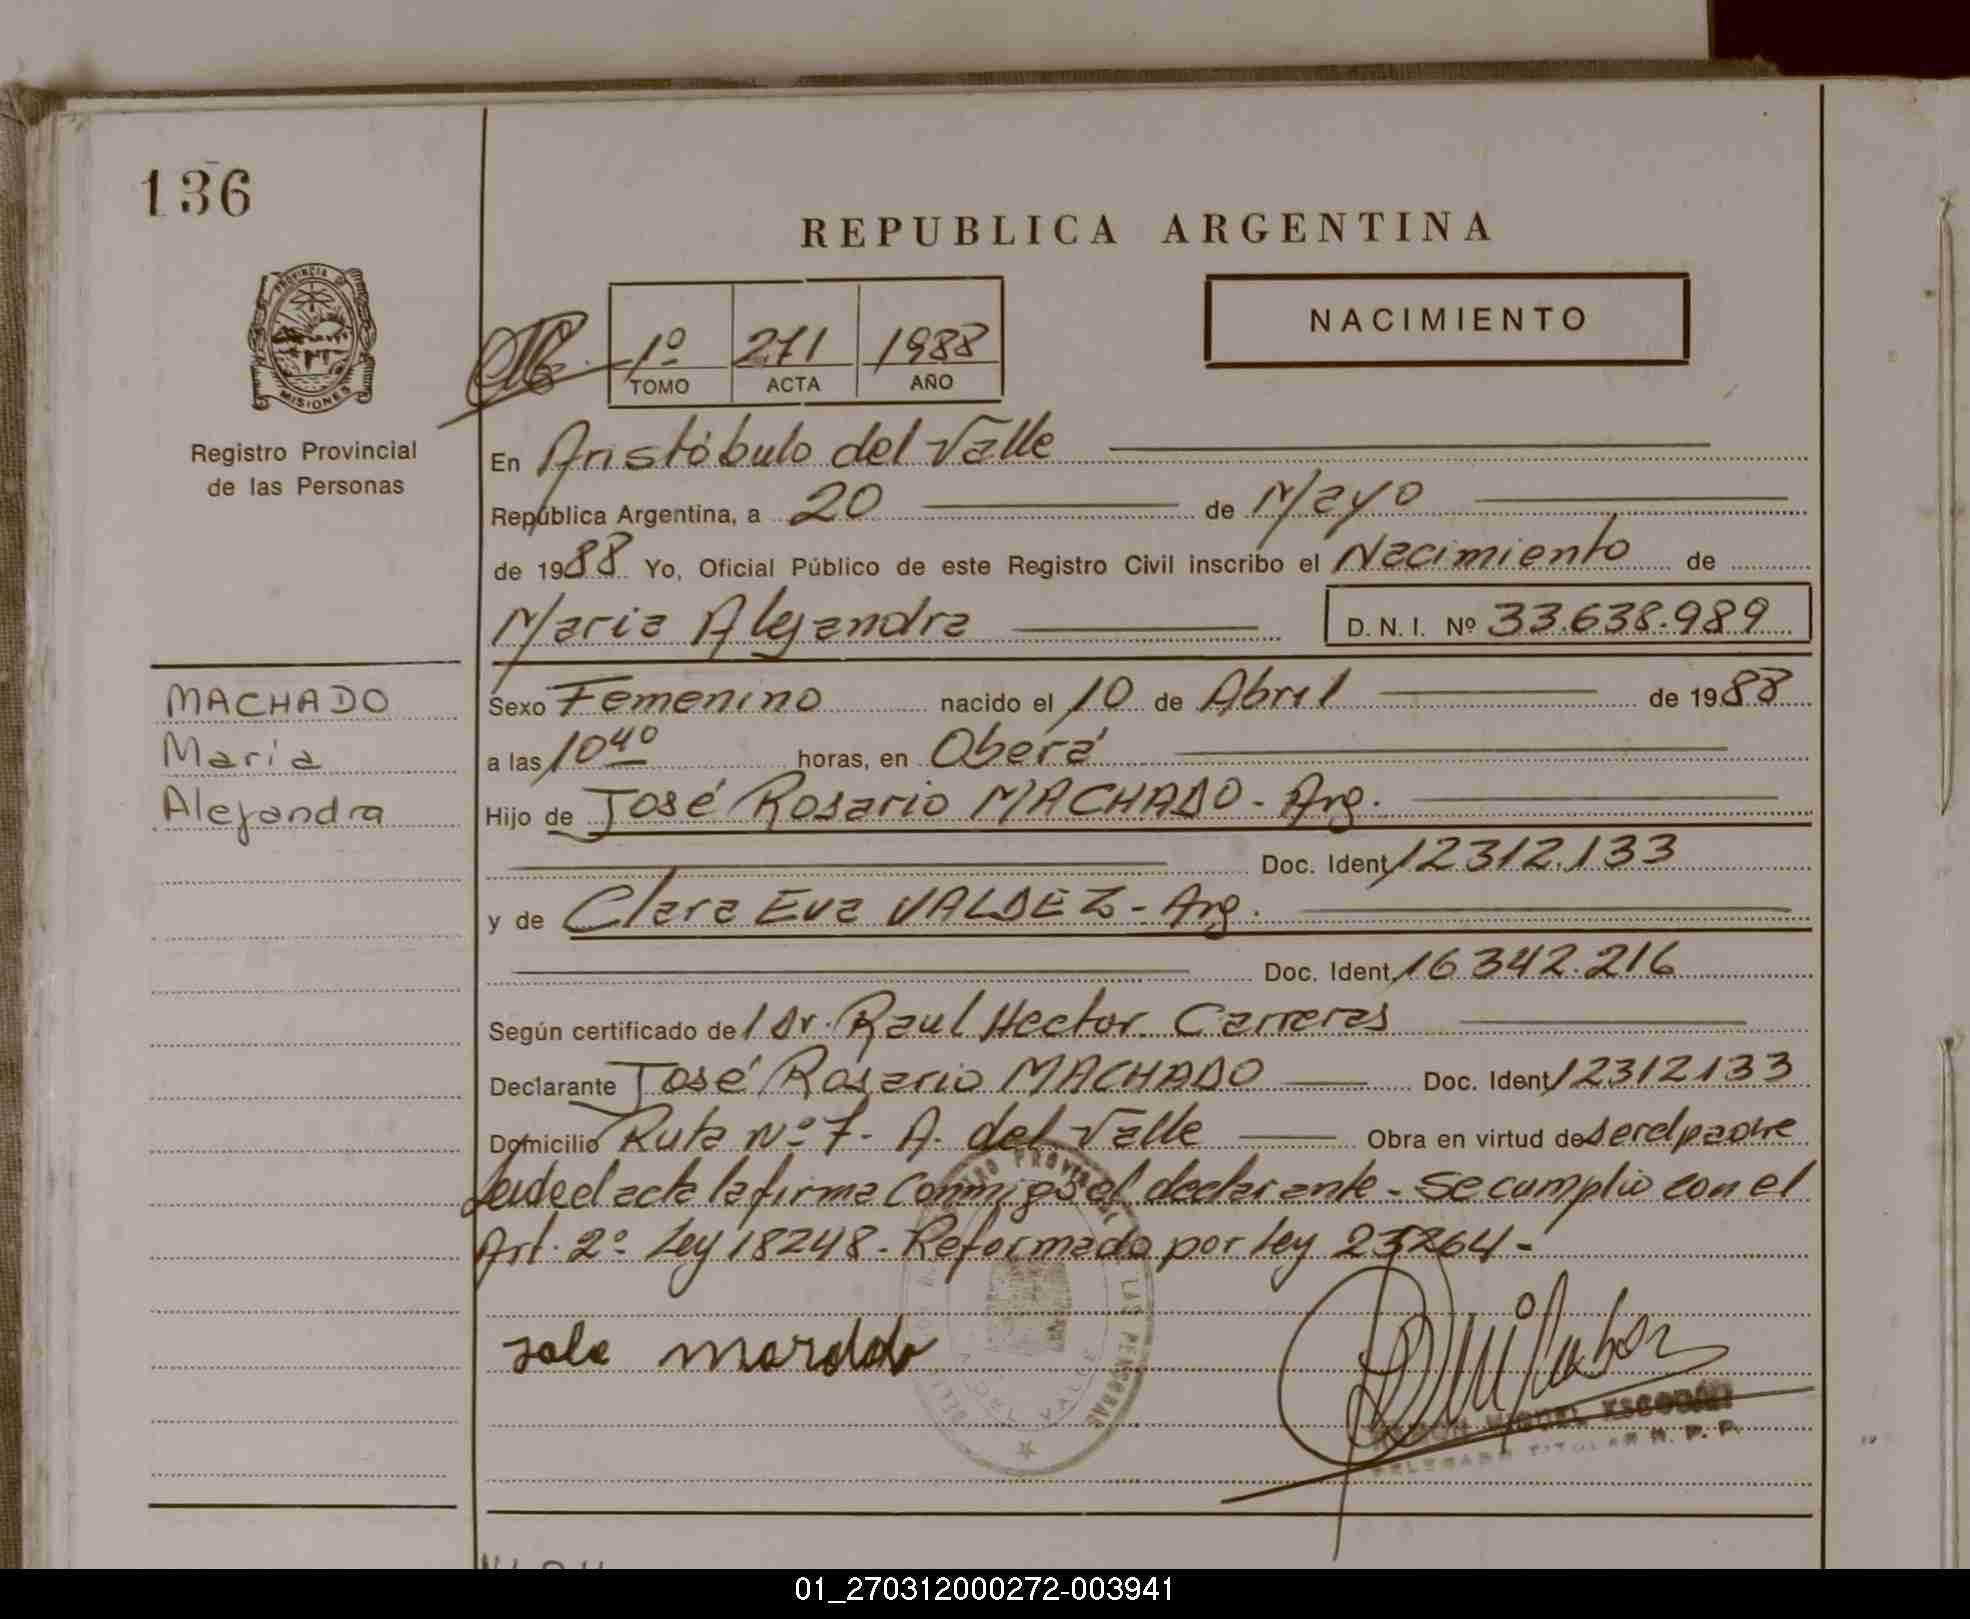 136
REPUBLICA ARGENTINA
PROVINCIA D
MISIONES
Registro Provincial
de las Personas
NACIMIENTO
1º 271 1988
TOMO ACTA AÑO
En Aristóbulo del Valle
República Argentina, a 20 de Mayo
de 1988 Yo, Oficial Público de este Registro Civil inscribo el Nacimiento de
Maria Alejandra D. N. I. Nº 33.638.989
MACHADO
María
Alejandra
Sexo Femenino nacido el 10 de Abril de 1988
a las 10 40 horas, en Oberá
Hijo de José Rosario MACHADO - Arg.
Doc. Ident. 12312.133
y de Clara Eva VALDEZ - Arg.
Doc. Ident. 16342.216
Según certificado de 1 Dr. Raul Hector Carreras
Declarante José Rosario MACHADO Doc. Ident. 12312133
Domicilio Ruta Nº 7 - A. del Valle Obra en virtud de ser el padre
Leida el acta la firma conmigo el declarante - Se cumplió con el
Art. 2º Ley 18248 - Reformado por Ley 23264 -
RAMON MIGUEL ESCOBAR
DELEGADO TITULAR R. P. P.
01_270312000272-003941